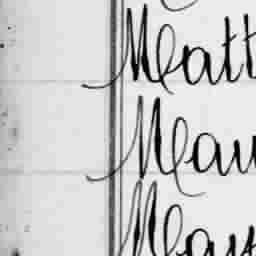 Matt
Mau
Mau